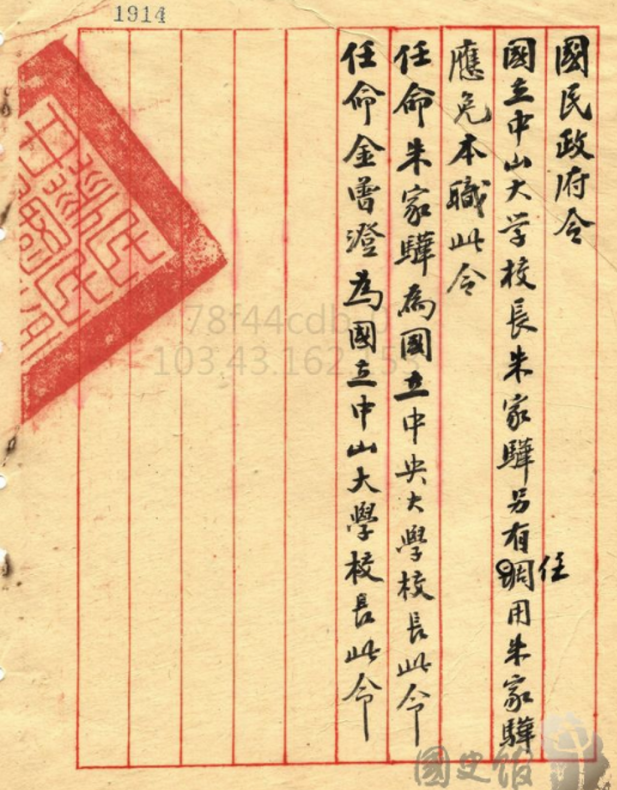 1914
國民政府令
國立中山大学校長朱家驊另有調任用朱家驊
應免本職此令
任命朱家驊為國立中央大學校長此令
任命金曾澄為國立中山大學校長此令
78f44cdb
103.43.162.15
國史館